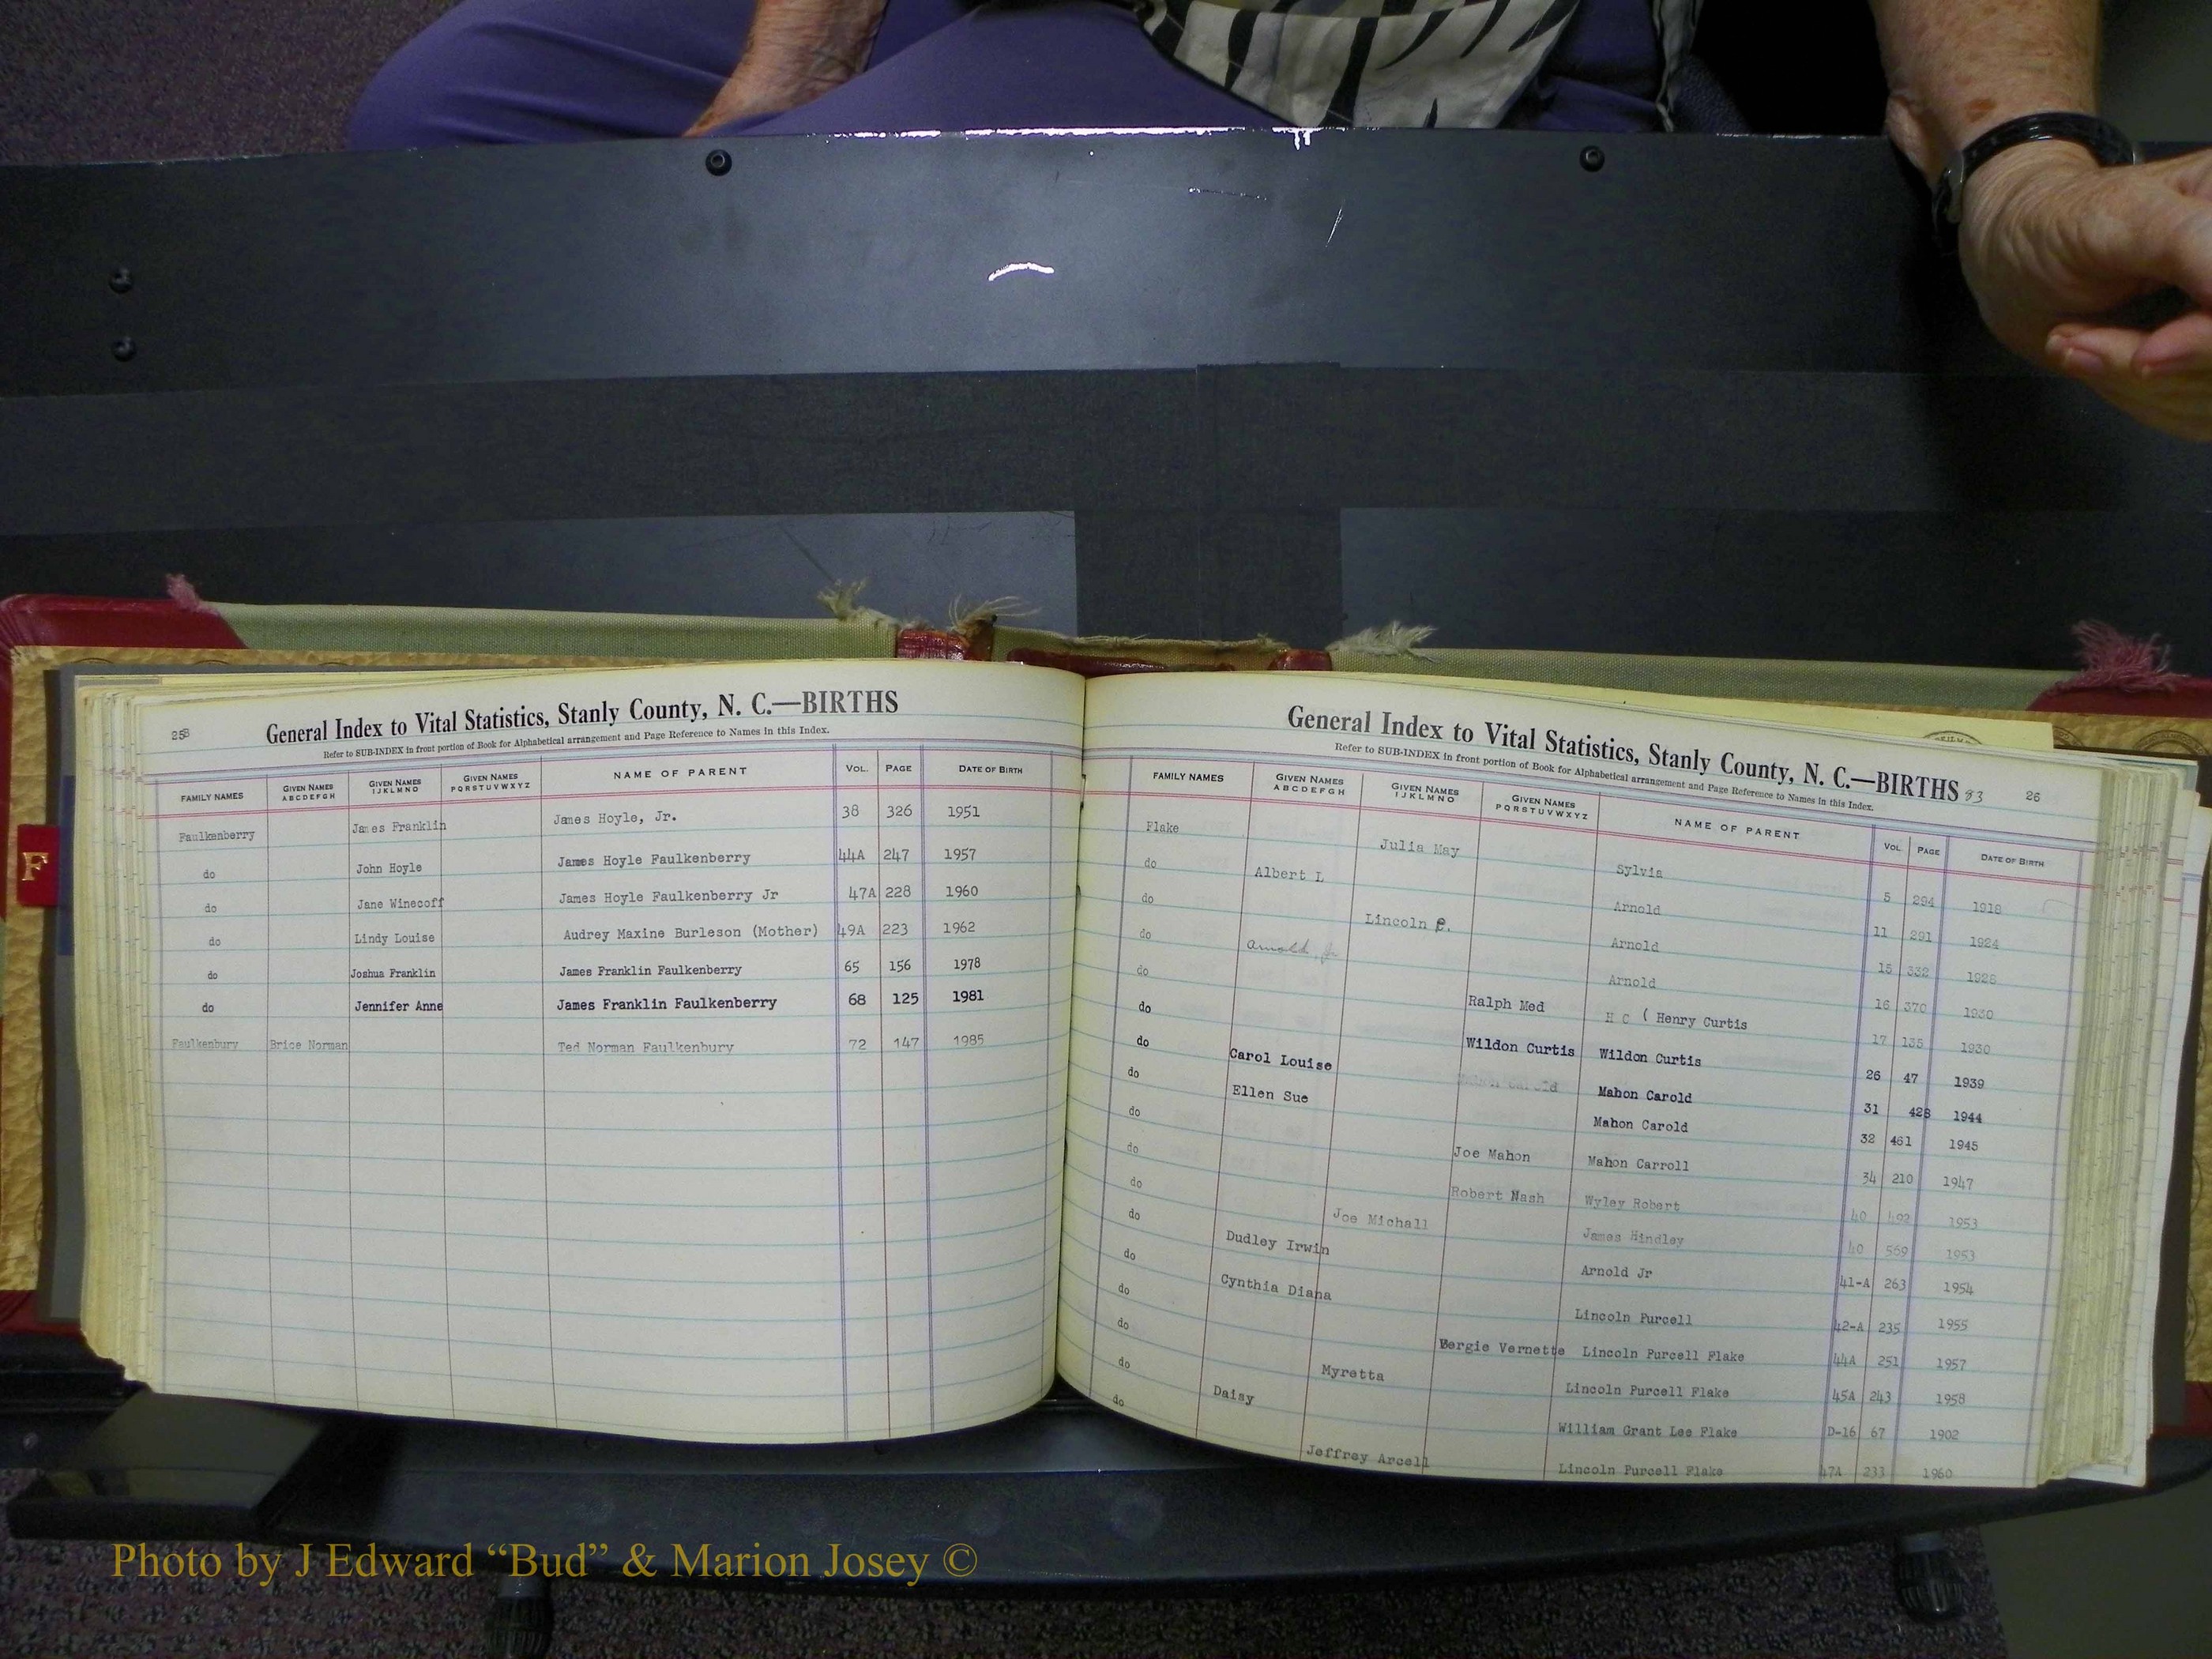 25B
General Index to Vital Statistics, Stanly County, N. C.—BIRTHS
Refer to SUB-INDEX in front portion of Book for Alphabetical arrangement and Page Reference to Names in this Index.
FAMILY NAMES GIVEN NAMES ABCDEFGH GIVEN NAMES IJKLMNO GIVEN NAMES PQRSTUVWXYZ NAME OF PARENT VOL. PAGE DATE OF BIRTH
Faulkenberry James Franklin James Hoyle, Jr. 38 326 1951
do John Hoyle James Hoyle Faulkenberry 44A 247 1957
do Jane Winecoff James Hoyle Faulkenberry Jr 47A 228 1960
do Lindy Louise Audrey Maxine Burleson (Mother) 49A 223 1962
do Joshua Franklin James Franklin Faulkenberry 65 156 1978
do Jennifer Anne James Franklin Faulkenberry 68 125 1981
Faulkenbury Brice Norman Ted Norman Faulkenbury 72 147 1985
F
General Index to Vital Statistics, Stanly County, N. C.—BIRTHS 93 26
Refer to SUB-INDEX in front portion of Book for Alphabetical arrangement and Page Reference to Names in this Index.
FAMILY NAMES GIVEN NAMES ABCDEFGH GIVEN NAMES IJKLMNO GIVEN NAMES PQRSTUVWXYZ NAME OF PARENT VOL. PAGE DATE OF BIRTH
Flake Julia May Sylvia 5 294 1918
do Albert L Arnold 11 291 1924
do Lincoln P. Arnold 15 332 1928
do Arnold, Jr Arnold 16 370 1930
do Ralph Med H C ( Henry Curtis 17 135 1930
do Wildon Curtis Wildon Curtis 26 47 1939
do Carol Louise Mahon Carold 31 428 1944
do Ellen Sue Mahon Carold 32 461 1945
do Joe Mahon Mahon Carroll 34 210 1947
do Robert Nash Wyley Robert 40 492 1953
do Joe Michall James Hindley 40 569 1953
do Dudley Irwin Arnold Jr 41-A 263 1954
do Cynthia Diana Lincoln Purcell 42-A 235 1955
do Vergie Vernette Lincoln Purcell Flake 44A 251 1957
do Myretta Lincoln Purcell Flake 45A 243 1958
do Daisy William Grant Lee Flake D-16 67 1902
do Jeffrey Arcell Lincoln Purcell Flake 47A 233 1960
Photo by J Edward “Bud” & Marion Josey ©